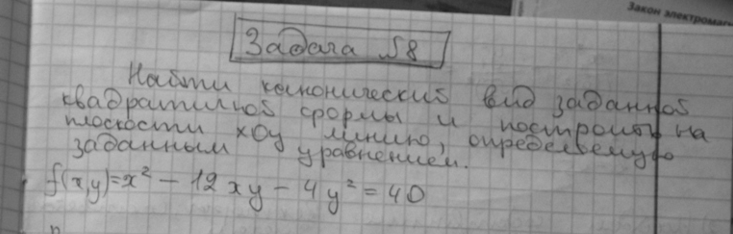 Закон электромагн
Задача №8
Найти канонический вид заданной
квадратичной формы и построить на
плоскости xOy линию, определяемую
заданным уравнением.
f(x,y)=x² - 12xy - 4y² = 40